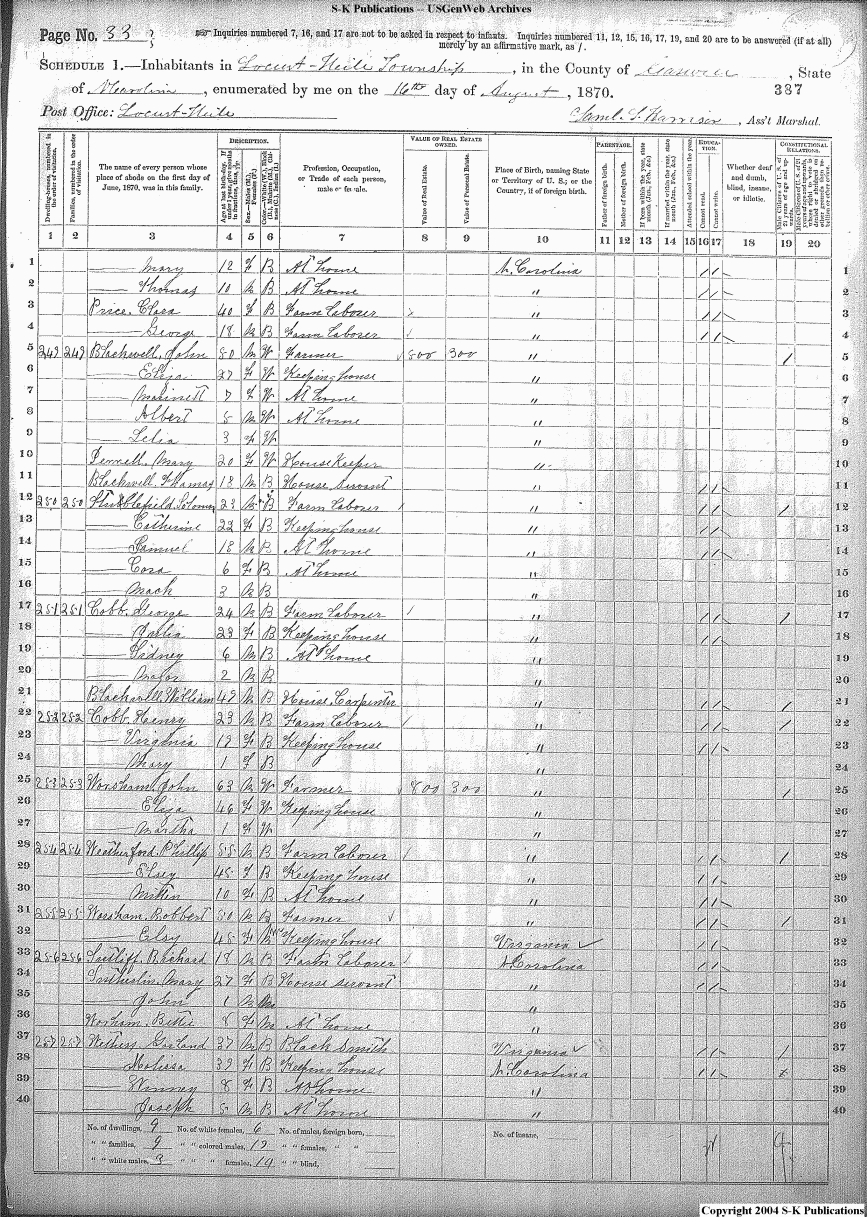 S-K Publications -- USGenWeb Archives
Page No. 33
Inquiries numbered 7, 16, and 17 are not to be asked in respect to infants. Inquiries numbered 11, 12, 15, 16, 17, 19, and 20 are to be answered (if at all) merely by an affirmative mark, as /.
SCHEDULE 1.—Inhabitants in Locust-Hill Township, in the County of Caswell, State
of N Carolina, enumerated by me on the 16th day of August, 1870. 337
Post Office: Locust-Hill Saml. S. Harrison, Ass't Marshal.
DESCRIPTION. VALUE OF REAL ESTATE OWNED. PARENTAGE. EDUCATION. CONSTITUTIONAL RELATIONS.
Dwelling-houses, numbered in the order of visitation.
Families, numbered in the order of visitation.
The name of every person whose place of abode on the first day of June, 1870, was in this family.
Profession, Occupation, or Trade of each person, male or female.
Value of Real Estate.
Value of Personal Estate.
Place of Birth, naming State or Territory of U. S.; or the Country, if of foreign birth.
Father of foreign birth.
Mother of foreign birth.
Attended school within the year.
Cannot read.
Cannot write.
Whether deaf and dumb, blind, insane, or idiotic.
1 2 3 4 5 6 7 8 9 10 11 12 13 14 15 16 17 18 19 20
1 —— Mary 12 F B At home N. Carolina / / 1
2 —— Thomas 10 M B At home " / / 2
3 Price, Clara 40 F B Farm Laborer " / / 3
4 —— George 18 M B Farm Laborer " / / 4
5 249 249 Blackwell, John 50 M W Farmer 800 300 " / 5
6 —— Eliza 27 F W Keeping house " 6
7 —— 7 F W At home " 7
8 —— Albert 5 M W At home " 8
9 —— Lelia 3 F W " 9
10 Mary 20 F W House Keeper " 10
11 Blackwell, Thomas 18 M B House Servant " / / 11
12 250 250 Stubblefield, Solomon 23 M B Farm Laborer " / / / 12
13 —— Catherine 22 F B Keeping house " / / 13
14 —— Samuel 18 M B At home " / / 14
15 —— Cora 6 F B At home " 15
16 —— Mack 3 M B " 16
17 251 251 Cobb, George 24 M B Farm Laborer " / / / 17
18 —— 23 F B Keeping house " / / 18
19 —— Sidney 6 M B At home " 19
20 —— Major 2 M B " 20
21 Blackwell, William 49 M B House Carpenter " / / / 21
22 252 252 Cobb, Henry 23 M B Farm Laborer " / / / 22
23 —— Virginia 19 F B Keeping house " / / 23
24 —— Mary 1 F B " 24
25 253 253 Worsham, John 63 M W Farmer 800 300 " / 25
26 —— Eliza 46 F W Keeping house " 26
27 —— Martha 1 F W " 27
28 254 254 Weatherford, Phillip 55 M B Farm Laborer " / / / 28
29 —— Elsey 45 F B Keeping house " / / 29
30 —— 10 F B At home " / / 30
31 255 255 Worsham, Robbert 50 M B Farmer " / / / 31
32 —— Elsy 45 F Keeping house Virgania / / 32
33 256 256 Richard 18 M B Farm Laborer N Carolina / / 33
34 Mary 27 F B House Servant " / / 34
35 —— John 1 M M " 35
36 Worham, Bettie 8 F M At home " 36
37 257 257 Garland 37 M B Black Smith Virgania / / / 37
38 —— Melissa 39 F B Keeping house N. Carolina / / x 38
39 —— 8 F B At home " 39
40 —— Joseph 5 M B At home " 40
No. of dwellings, 9 No. of white females, 6 No. of males, foreign born, No. of insane,
" " families, 9 " " colored males, " " females, " "
" " white males, 3 " " " females, " " blind,
Copyright 2004 S-K Publications